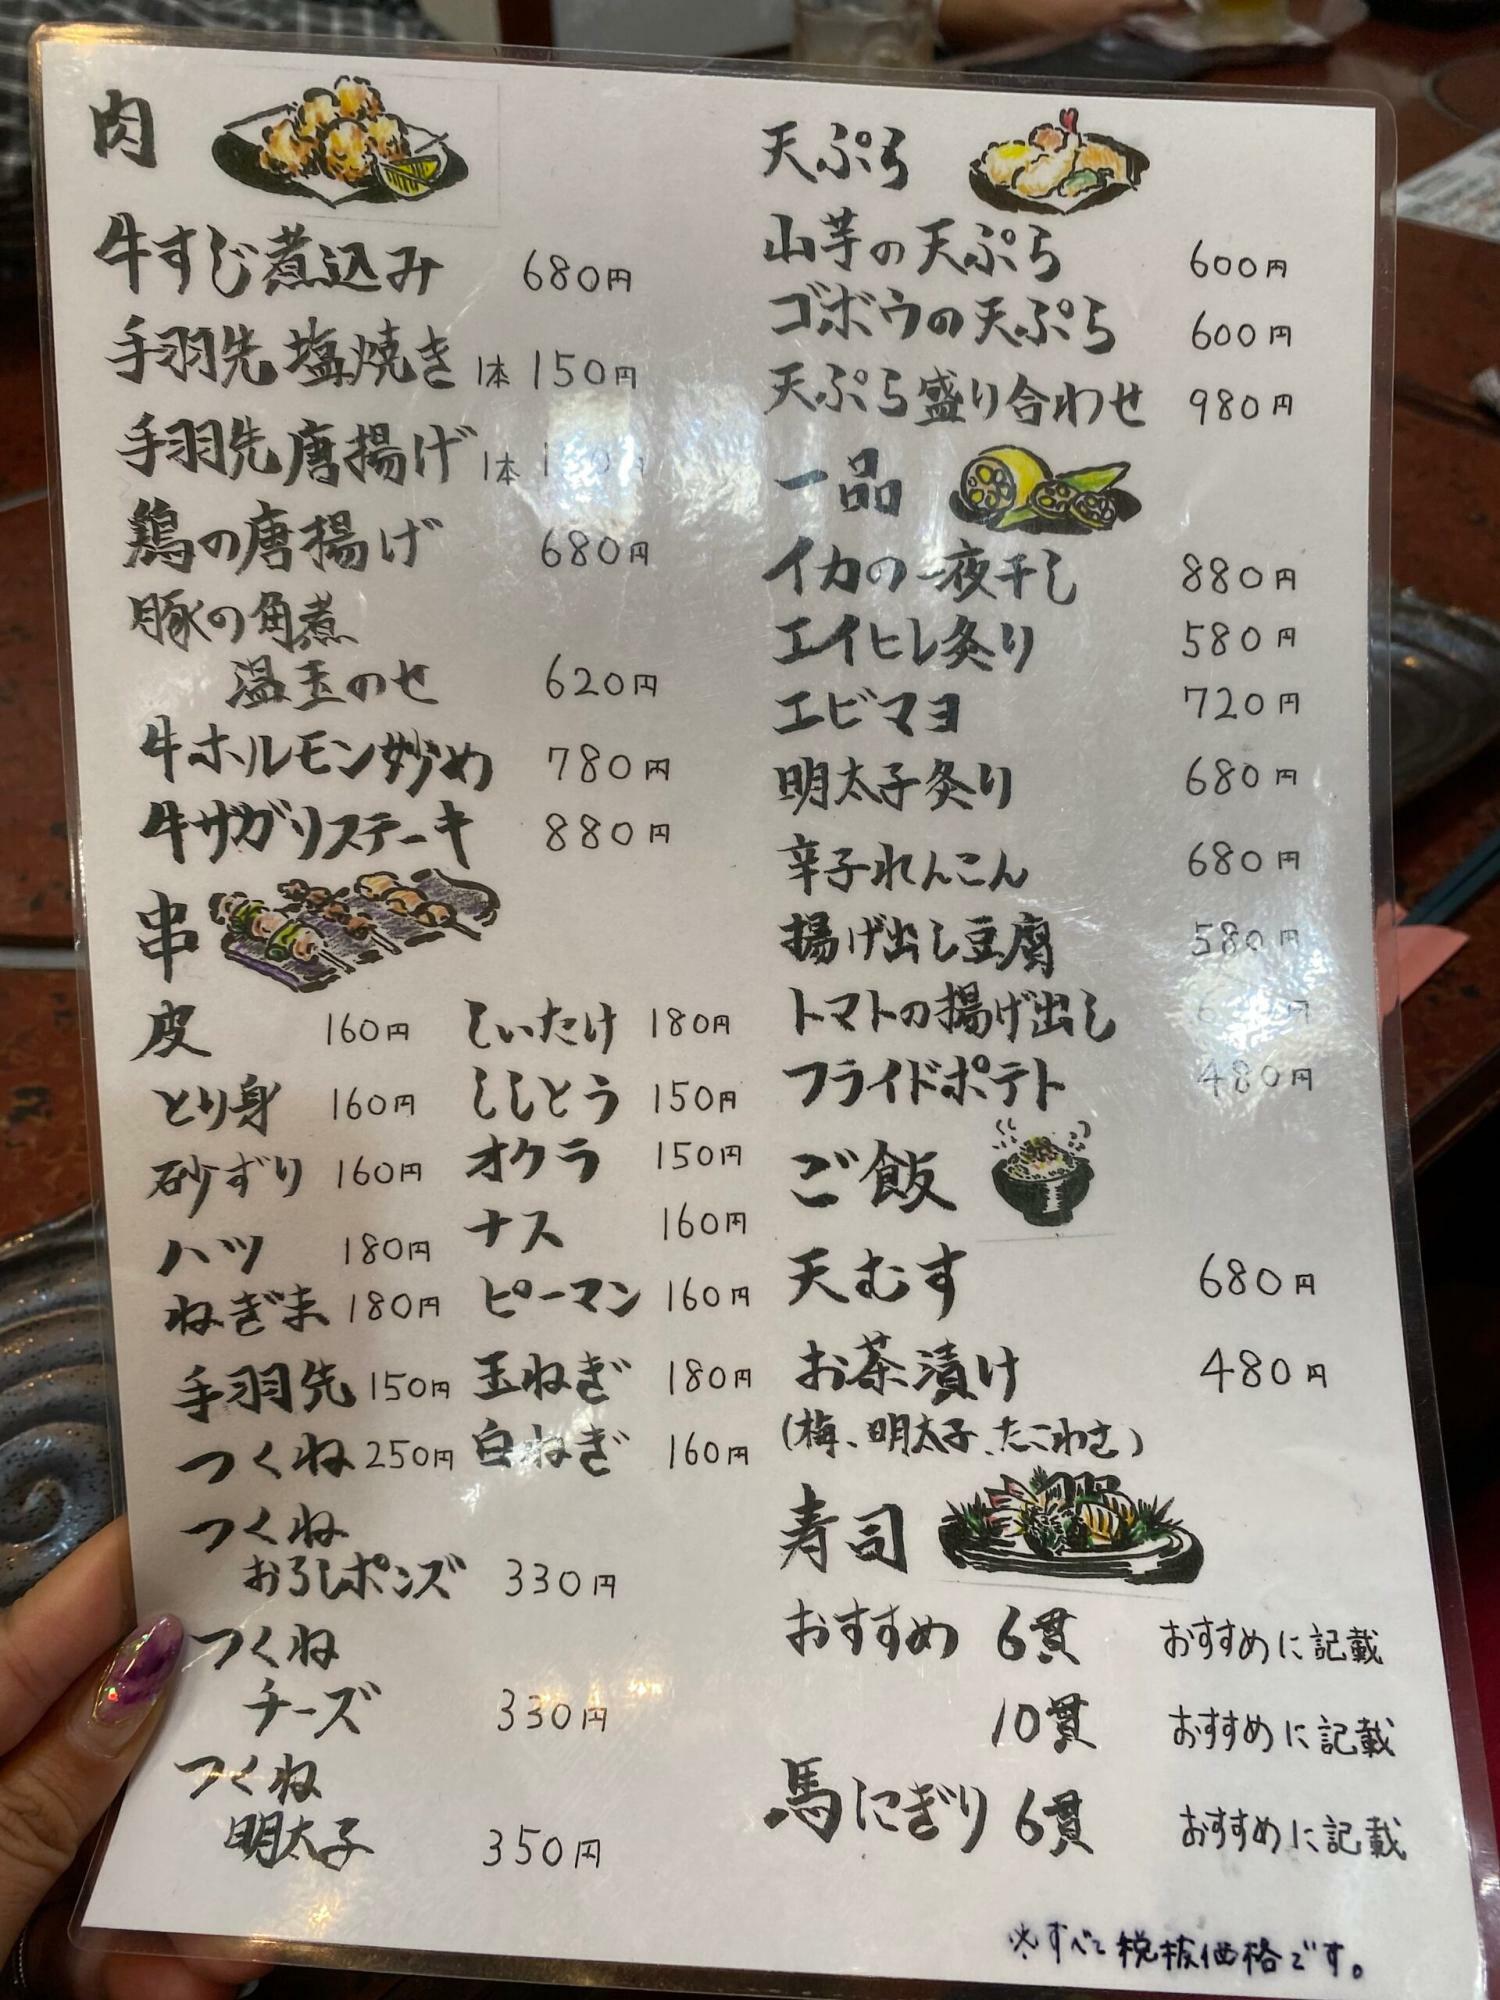 肉
牛すじ煮込み 680円
手羽先 塩焼き 1本 150円
手羽先唐揚げ 1本
鶏の唐揚げ 680円
豚の角煮
温玉のせ 620円
牛ホルモン炒め 780円
牛サガリステーキ 880円
串
皮 160円 しいたけ 180円
とり身 160円 ししとう 150円
砂ずり 160円 オクラ 150円
ハツ 180円 ナス 160円
ねぎま 180円 ピーマン 160円
手羽先 150円 玉ねぎ 180円
つくね 250円 白ねぎ 160円
つくね
おろしポンズ 330円
つくね
チーズ 330円
つくね
明太子 350円
天ぷら
山芋の天ぷら 600円
ゴボウの天ぷら 600円
天ぷら盛り合わせ 980円
一品
イカの一夜干し 880円
エイヒレ炙り 580円
エビマヨ 720円
明太子炙り 680円
辛子れんこん 680円
揚げ出し豆腐 580円
トマトの揚げ出し
フライドポテト 480円
ご飯
天むす 680円
お茶漬け 480円
(梅、明太子、たこわさ)
寿司
おすすめ 6貫 おすすめに記載
10貫 おすすめに記載
馬にぎり 6貫 おすすめに記載
※すべて税抜価格です。